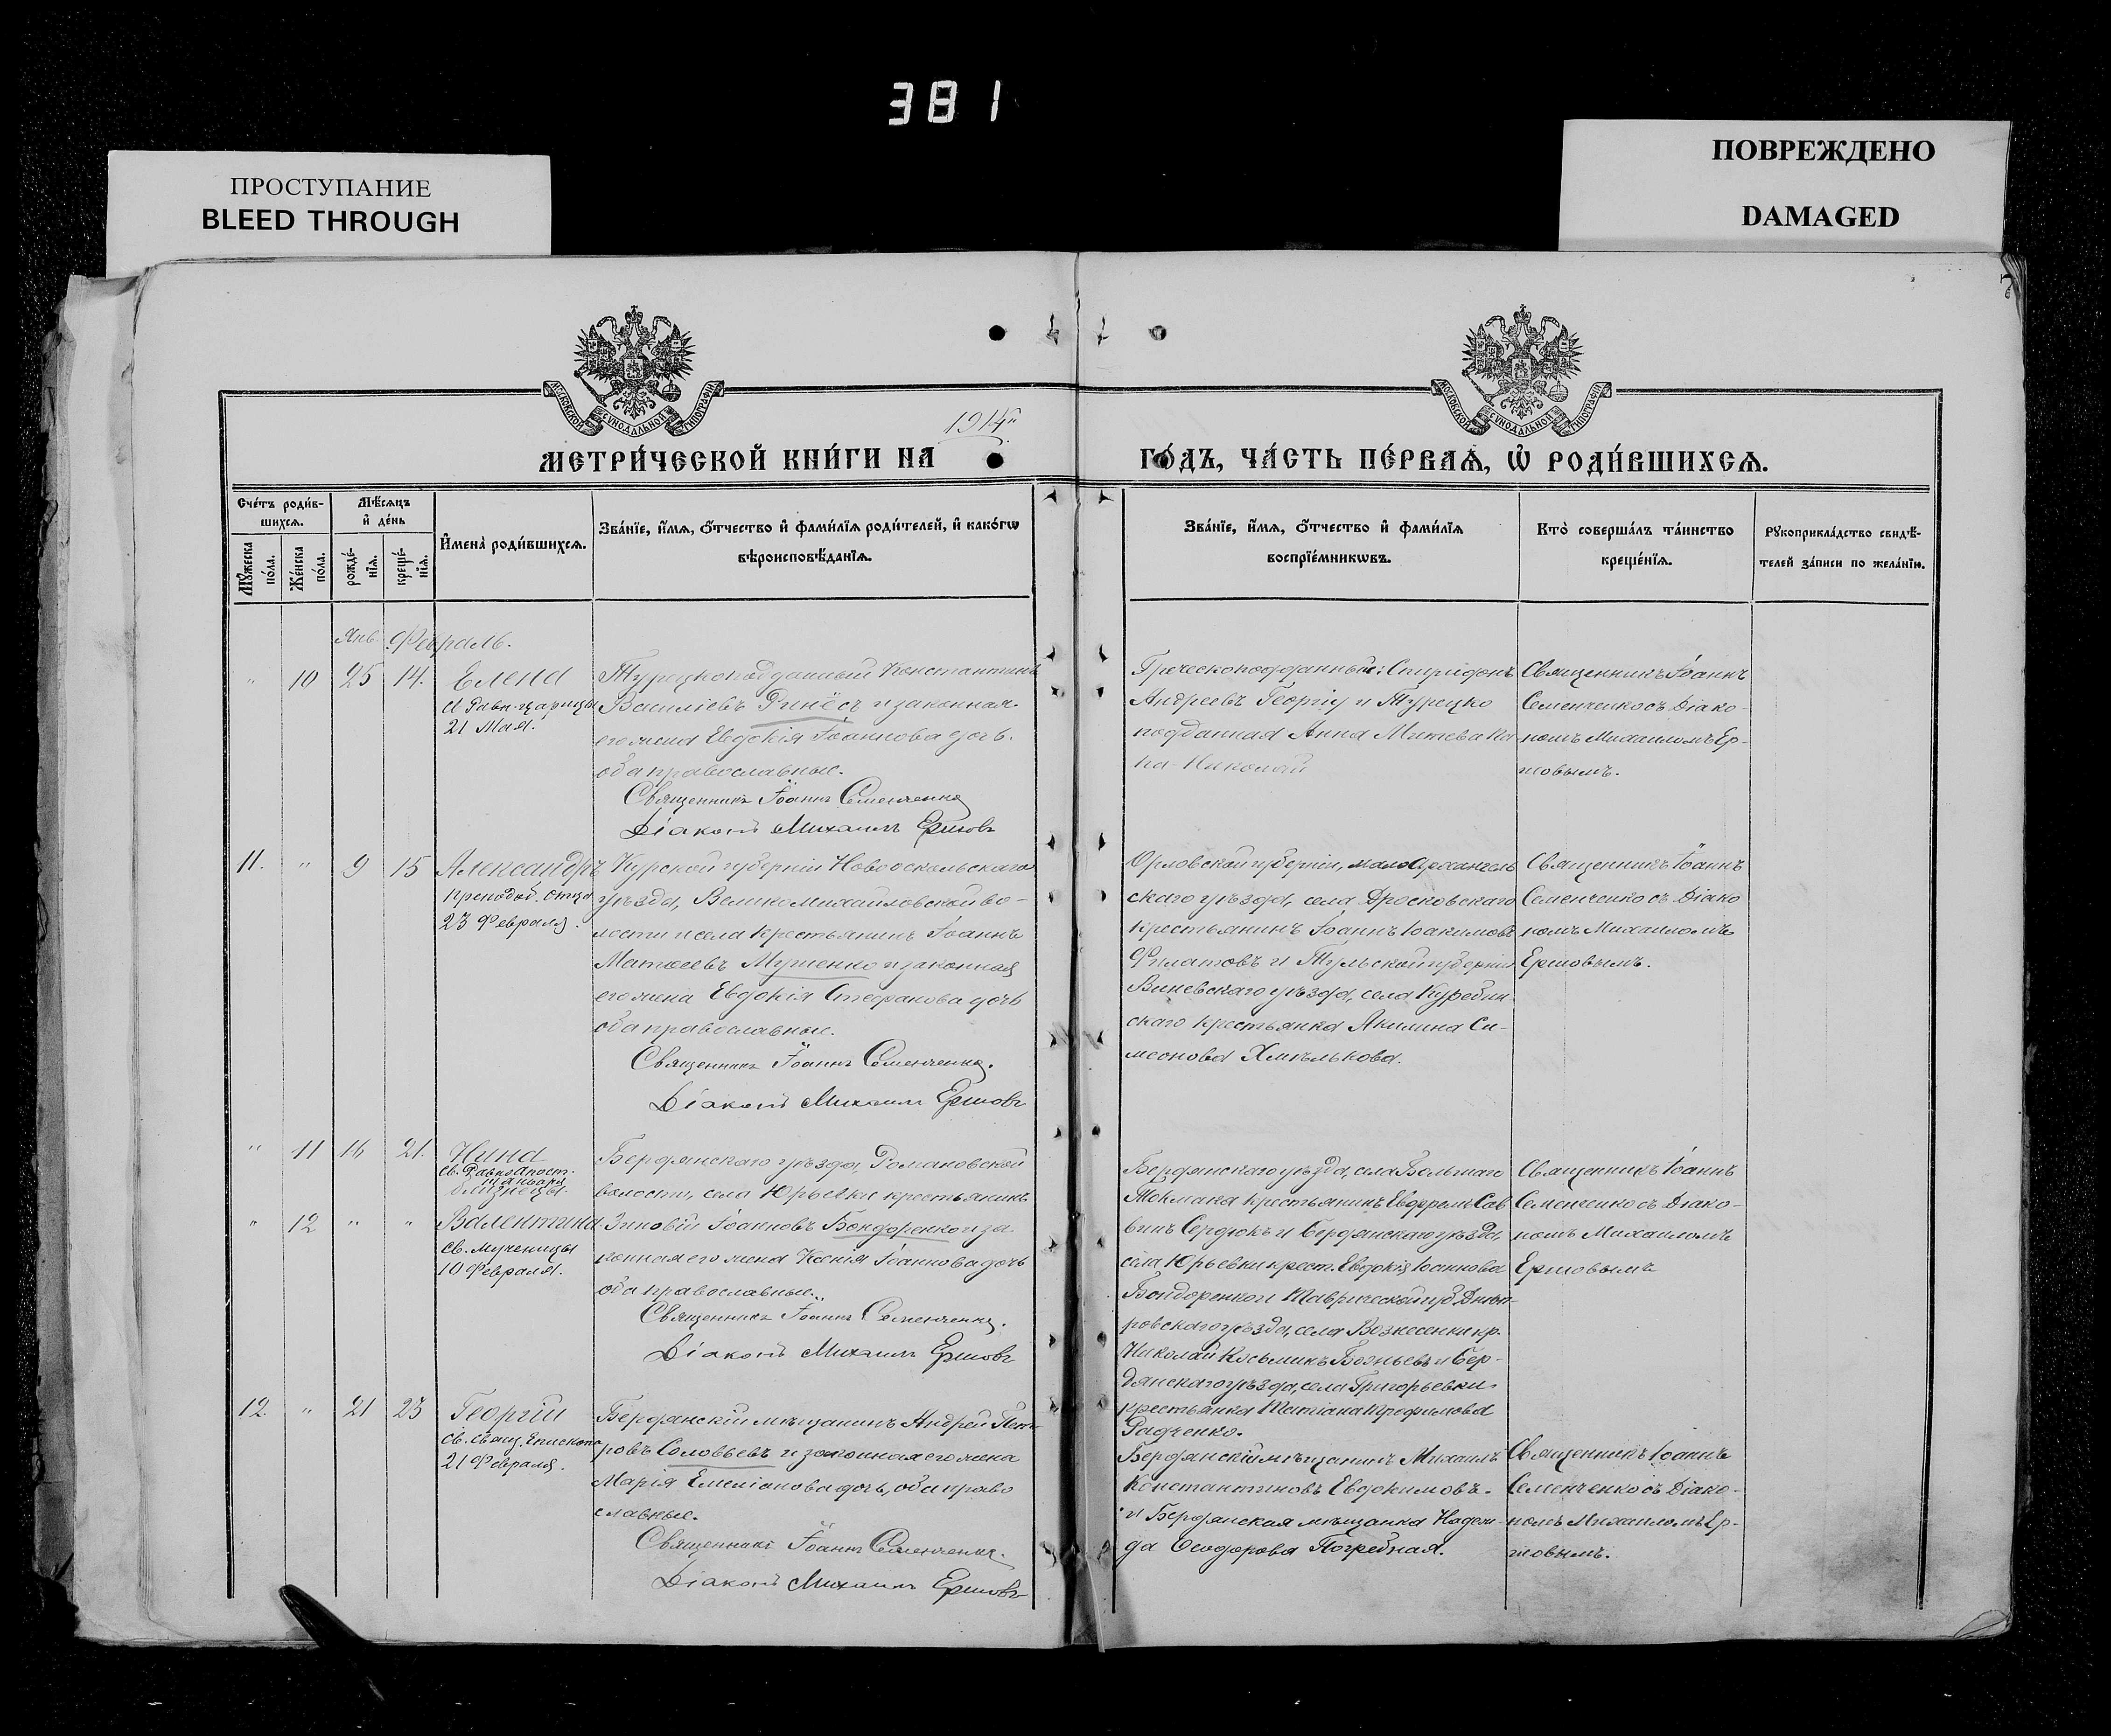 381
ПРОСТУПАНИЕ
BLEED THROUGH
ПОВРЕЖДЕНО
DAMAGED
МОСКОВСКОЙ СѴНОДАЛЬНОЙ ТИПОГРАФІИ
МОСКОВСКОЙ СѴНОДАЛЬНОЙ ТИПОГРАФІИ
МЕТРИ́ЧЕСКОЙ КНИ́ГИ НА 1914й ГО́ДЪ, ЧА́СТЬ ПЕ́РВАѦ, Ѡ҆ РОДИ́ВШИХСѦ.
Сче́тъ роди́в-
шихсѧ.
Мѣ́сѧцъ
и҆ де́нь
Мꙋ́жеска
по́ла.
Же́нска
по́ла.
рожде́-
нїѧ.
креще́-
нїѧ.
И҆мена̀ роди́вшихсѧ.
Зва́нїе, и҆́мѧ, ѻ҆́тчество и҆ фами́лїѧ роди́телей, и҆ како́гѡ
вѣроисповѣ́данїѧ.
Зва́нїе, и҆́мѧ, ѻ҆́тчество и҆ фами́лїѧ
воспрїе́мникѡвъ.
Кто̀ соверша́лъ та́инство
креще́нїѧ.
Рꙋкоприкла́дство свидѣ́-
телей за́писи по жела́нїю.
Янв. Февраль.
" 10 25 14.
Елена
21 Мая.
Турецкоподданный Константинъ
Василіевъ Ринёсъ и законная
его жена Евдокія Іоаннова дочь.
оба православные.
Священникъ Іоаннъ Семенченко
Діаконъ Михаилъ Ершовъ
Греческоподданный: Спиридонъ
Андреевъ Георгіу и Турецко
подданная Анна
Священникъ Іоаннъ
Семенченко съ Діако-
номъ Михаиломъ Ер-
шовымъ.
11. " 9 15
Александръ
преподоб. отца
23 Февраля.
Курской губерніи Новооскольскаго
уѣзда, Велико Михаиловской во-
лости и села крестьянинъ Іоаннъ
Матѳеевъ Мушенко и законная
его жена Евдокія Стефанова дочь
оба православные.
Священникъ Іоаннъ Семенченко.
Діаконъ Михаилъ Ершовъ
Орловской губерніи, малоархангель
скаго уѣзда, села Дросковскаго
крестьянинъ Іоаннъ Іоакимовъ
Филатовъ и Тульской губерніи
уѣзда, села
скаго крестьянка Акилина Си-
меонова Хмѣлькова.
Священникъ Іоаннъ
Семенченко съ Діако
номъ Михаиломъ
Ершовымъ.
" 11 16 21.
Нина
св. Равноапост.
14 января
близнецы.
" 12 " "
Валентина
св. мученицы
10 Февраля.
Бердянскаго уѣзда, Романовской
волости, села Юрьевки крестьянинъ
Зиновій Іоанновъ Бондоренко и за
конная его жена Ксенія Іоаннова дочь
оба православные.
Священникъ Іоаннъ Семенченко.
Діаконъ Михаилъ Ершовъ
Бердянскаго уѣзда, села Большаго
Токмака крестьянинъ Евфремъ Сав
винъ Сердюкъ и Бердянскаго уѣзда,
села Юрьевки крест. Евдокія Іоаннова
Бондоренко и Таврической губ. Днѣп-
ровскаго уѣзда, села Вознесенки кр.
Николай Косьминъ и Бер-
дянскаго уѣзда, села Григорьевки
крестьянка Татіана Трофимова
Радченко.
Священникъ Іоаннъ
Семенченко съ Діако-
номъ Михаиломъ
Ершовымъ
12. " 21 23
Георгій
св. свящ. Епископа
21 Февраля.
Бердянскій мѣщанинъ Андрей Пет-
ровъ Соловьевъ и законная его жена
Марія Емеліанова дочь, оба право
славные.
Священникъ Іоаннъ Семенченко.
Діаконъ Михаилъ Ершовъ
Бердянскій мѣщанинъ Михаилъ
Константиновъ Евдокимовъ.
и Бердянская мѣщанка Надеж-
да Ѳеодорова Погребная.
Священникъ Іоаннъ
Семенченко съ Діако-
номъ Михаиломъ Ер-
шовымъ.